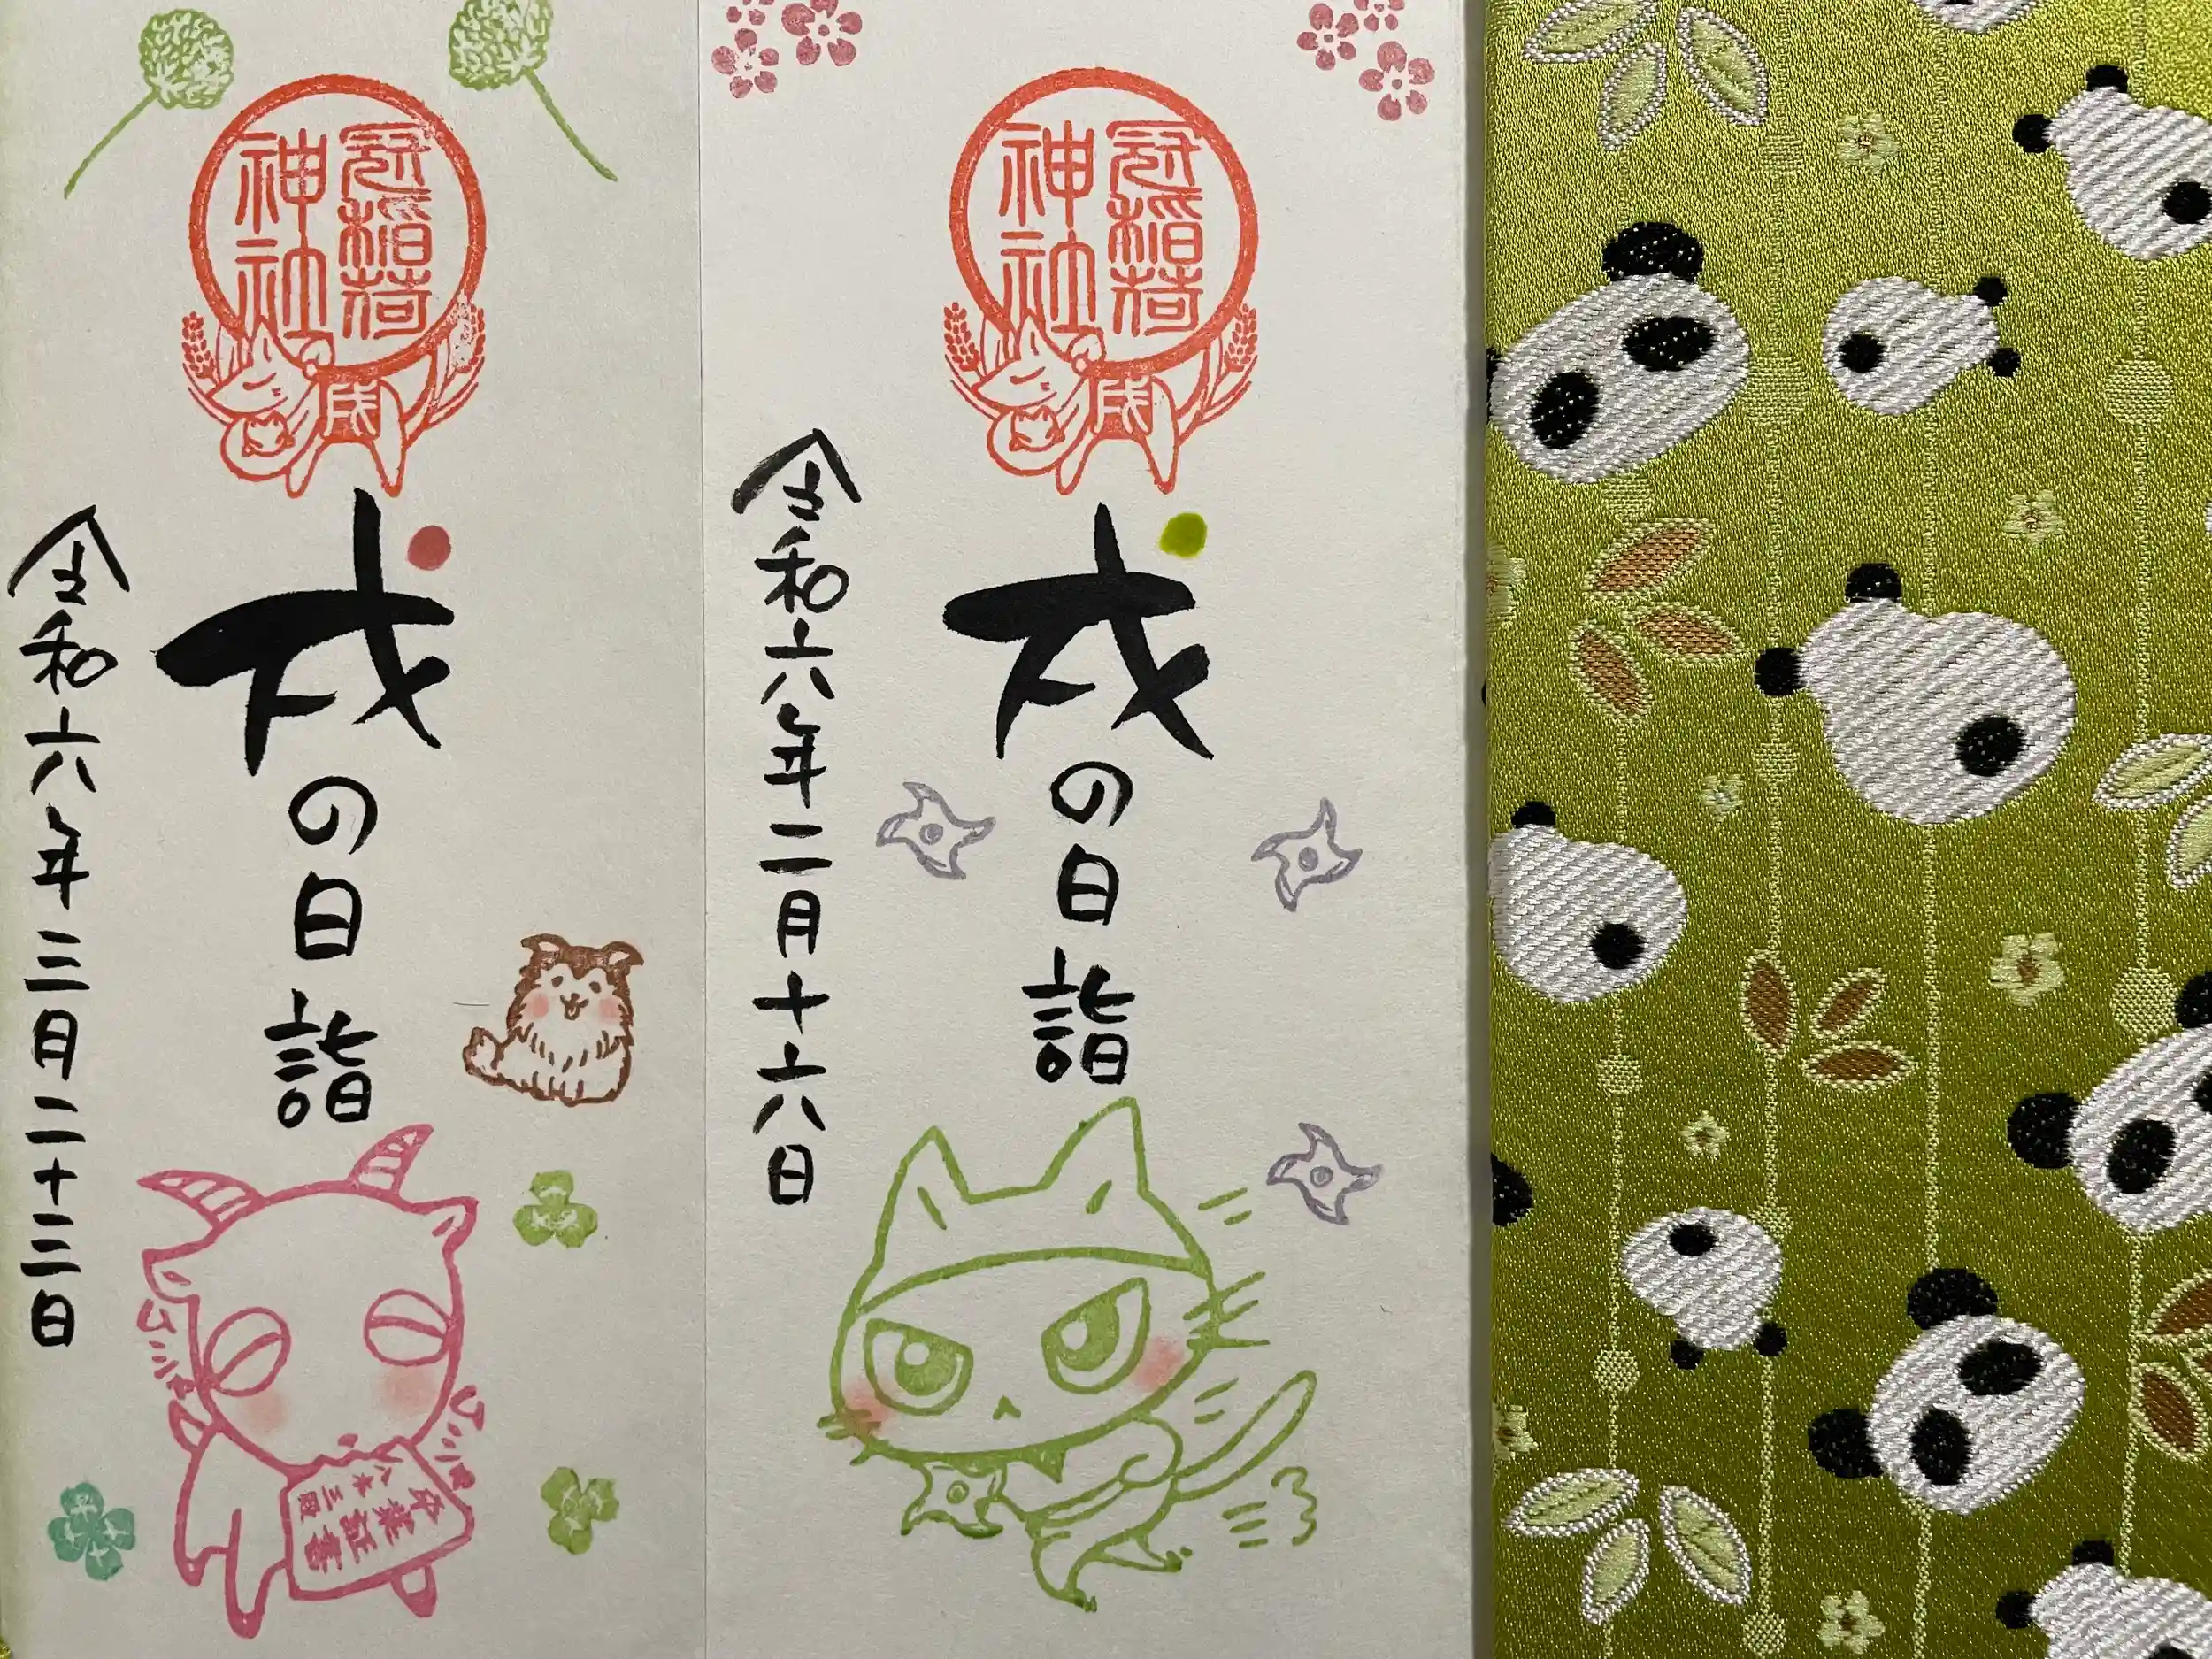 冠稲荷
神社
戌
戌の日詣
令和六年二月十六日
冠稲荷
神社
戌
戌の日詣
令和六年三月二十三日
卒業証書